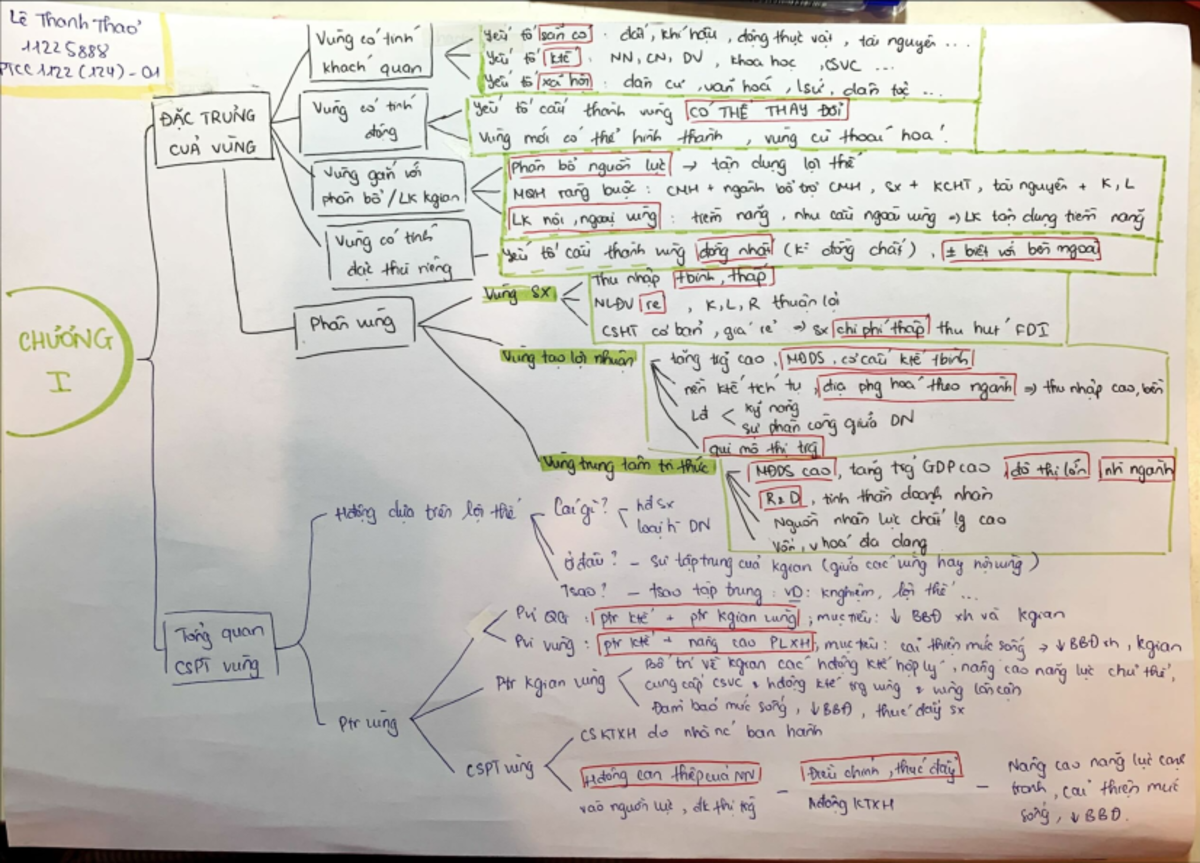 Lê Thanh Thảo
11225888
PTCC1122(124)-01
CHƯƠNG
I
ĐẶC TRƯNG
CỦA VÙNG
Vùng có tính
khách quan
Yếu tố sẵn có : đất, khí hậu, động thực vật, tài nguyên ...
Yếu tố ktế : NN, CN, DV, khoa học, CSVC ...
Yếu tố xã hội : dân cư, văn hoá, lsử, dân tộc ...
Vùng có tính
động
Yếu tố cấu thành vùng CÓ THỂ THAY ĐỔI
Vùng mới có thể hình thành, vùng cũ thoái hoá!
Vùng gắn với
phân bố/LK kgian
Phân bổ nguồn lực → tận dụng lợi thế
MQH ràng buộc : CMH + ngành bổ trợ CMH, SX + KCHT, tài nguyên + K, L
LK nội, ngoại vùng : tiềm năng, nhu cầu ngoài vùng ⇒ LK tận dụng tiềm năng
Vùng có tính
đặc thù riêng
Yếu tố cấu thành vùng đồng nhất (k= đồng chất), ± biệt với bên ngoài
Phân vùng
Vùng SX
Thu nhập tbình, thấp
NLĐV rẻ, K, L, R thuận lợi
CSHT cơ bản, giá rẻ ⇒ sx chi phí thấp thu hút FDI
Vùng tạo lợi nhuận
tăng trg cao, MĐDS, cơ cấu ktế tbình
nền ktế tích tụ, địa phg hoá theo ngành ⇒ thu nhập cao, bền
LĐ < kỹ năng
sự phân công giữa DN
qui mô thị trg
Vùng trung tâm tri thức
MĐDS cao, tăng trg GDP cao, đô thị lớn, nh ngành
R&D, tinh thần doanh nhân
Nguồn nhân lực chất lg cao
Vốn, vhoá đa dạng
Tổng quan
CSPT vùng
Hđộng dựa trên lợi thế
Cái gì? < hđ sx
loại h DN
Ở đâu? - Sự tập trung của kgian (giữa các vùng hay nội vùng)
Tsao? - tsao tập trung : VD: knghiệm, lợi thế ...
Ptr vùng
Pvi QG : ptr ktế + ptr kgian vùng; mục tiêu: ↓ BBĐ xh và kgian
Pvi vùng : ptr ktế + nâng cao PLXH, mục tiêu: cải thiện mức sống → ↓BBĐ xh, kgian
Ptr kgian vùng
Bố trí về kgian các hđộng ktế hợp lý, nâng cao năng lực chủ thể,
cung cấp CSVC & hđộng ktế trg vùng & vùng lân cận
Đảm bảo mức sống, ↓BBĐ, thúc đẩy sx
CSPT vùng
CS KTXH do nhà nc ban hành
Hđộng can thiệp của NN
vào nguồn lực, đk thị trg
- Điều chỉnh, thúc đẩy
hđộng KTXH
- Nâng cao năng lực cạnh
tranh, cải thiện mức
sống, ↓BBĐ.